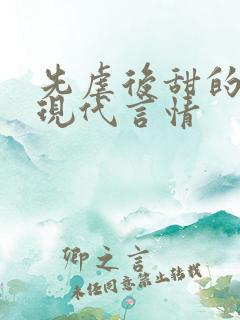 先虐後甜的
現代言情
卿之言
未经同意禁止转载